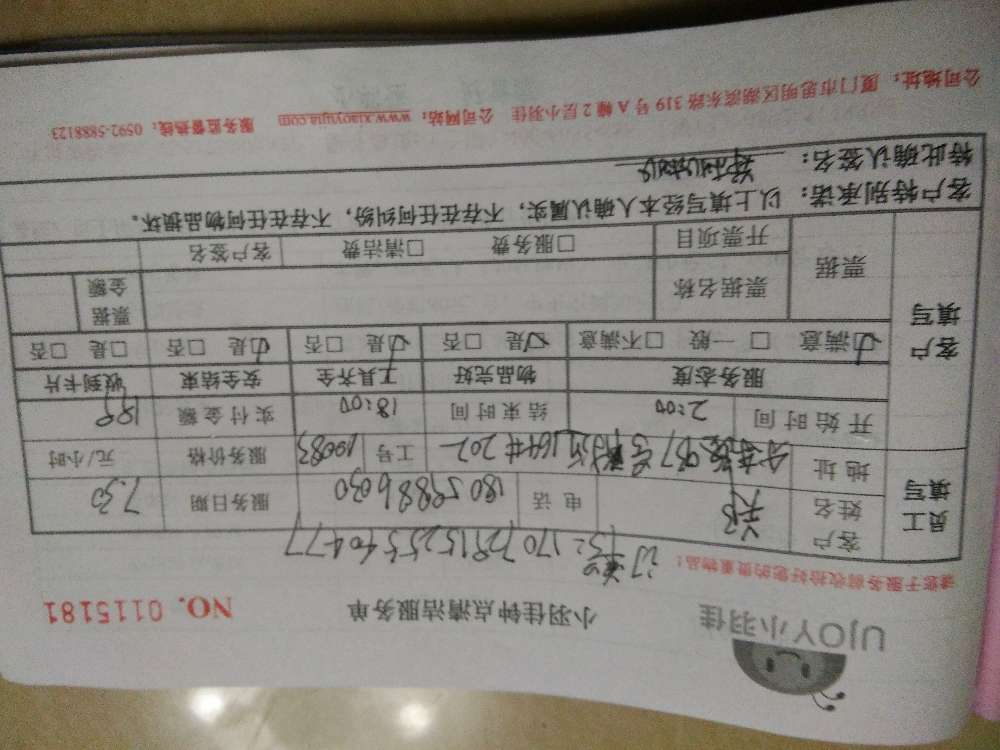 UJOY小羽佳
小羽佳钟点清洁服务单
NO. 0115181
请您于服务前收拾好您的贵重物品!
170728152553640477
员工填写
客户姓名
电话 18059886030
服务日期 7.30
地址 937号 164# 202
工号 10083
服务价格 元/小时
开始时间 2:00
结束时间 18:00
实付金额 199
客户填写
服务态度 物品完好 工具齐全 安全结束 收到卡片
☑满意 □一般 □不满意 ☑是 □否 ☑是 □否 ☑是 □否 □是 □否
票据
票据名称
票据金额
开票项目 □服务费 □清洁费 客户签名
客户特别承诺:以上填写经本人确认属实,不存在任何纠纷,不存在任何物品损坏。
特此确认签名:
公司地址:厦门市思明区湖滨东路319号A幢2层小羽佳 公司网站:www.xiaoyujia.com 服务监督热线:0592-5888123